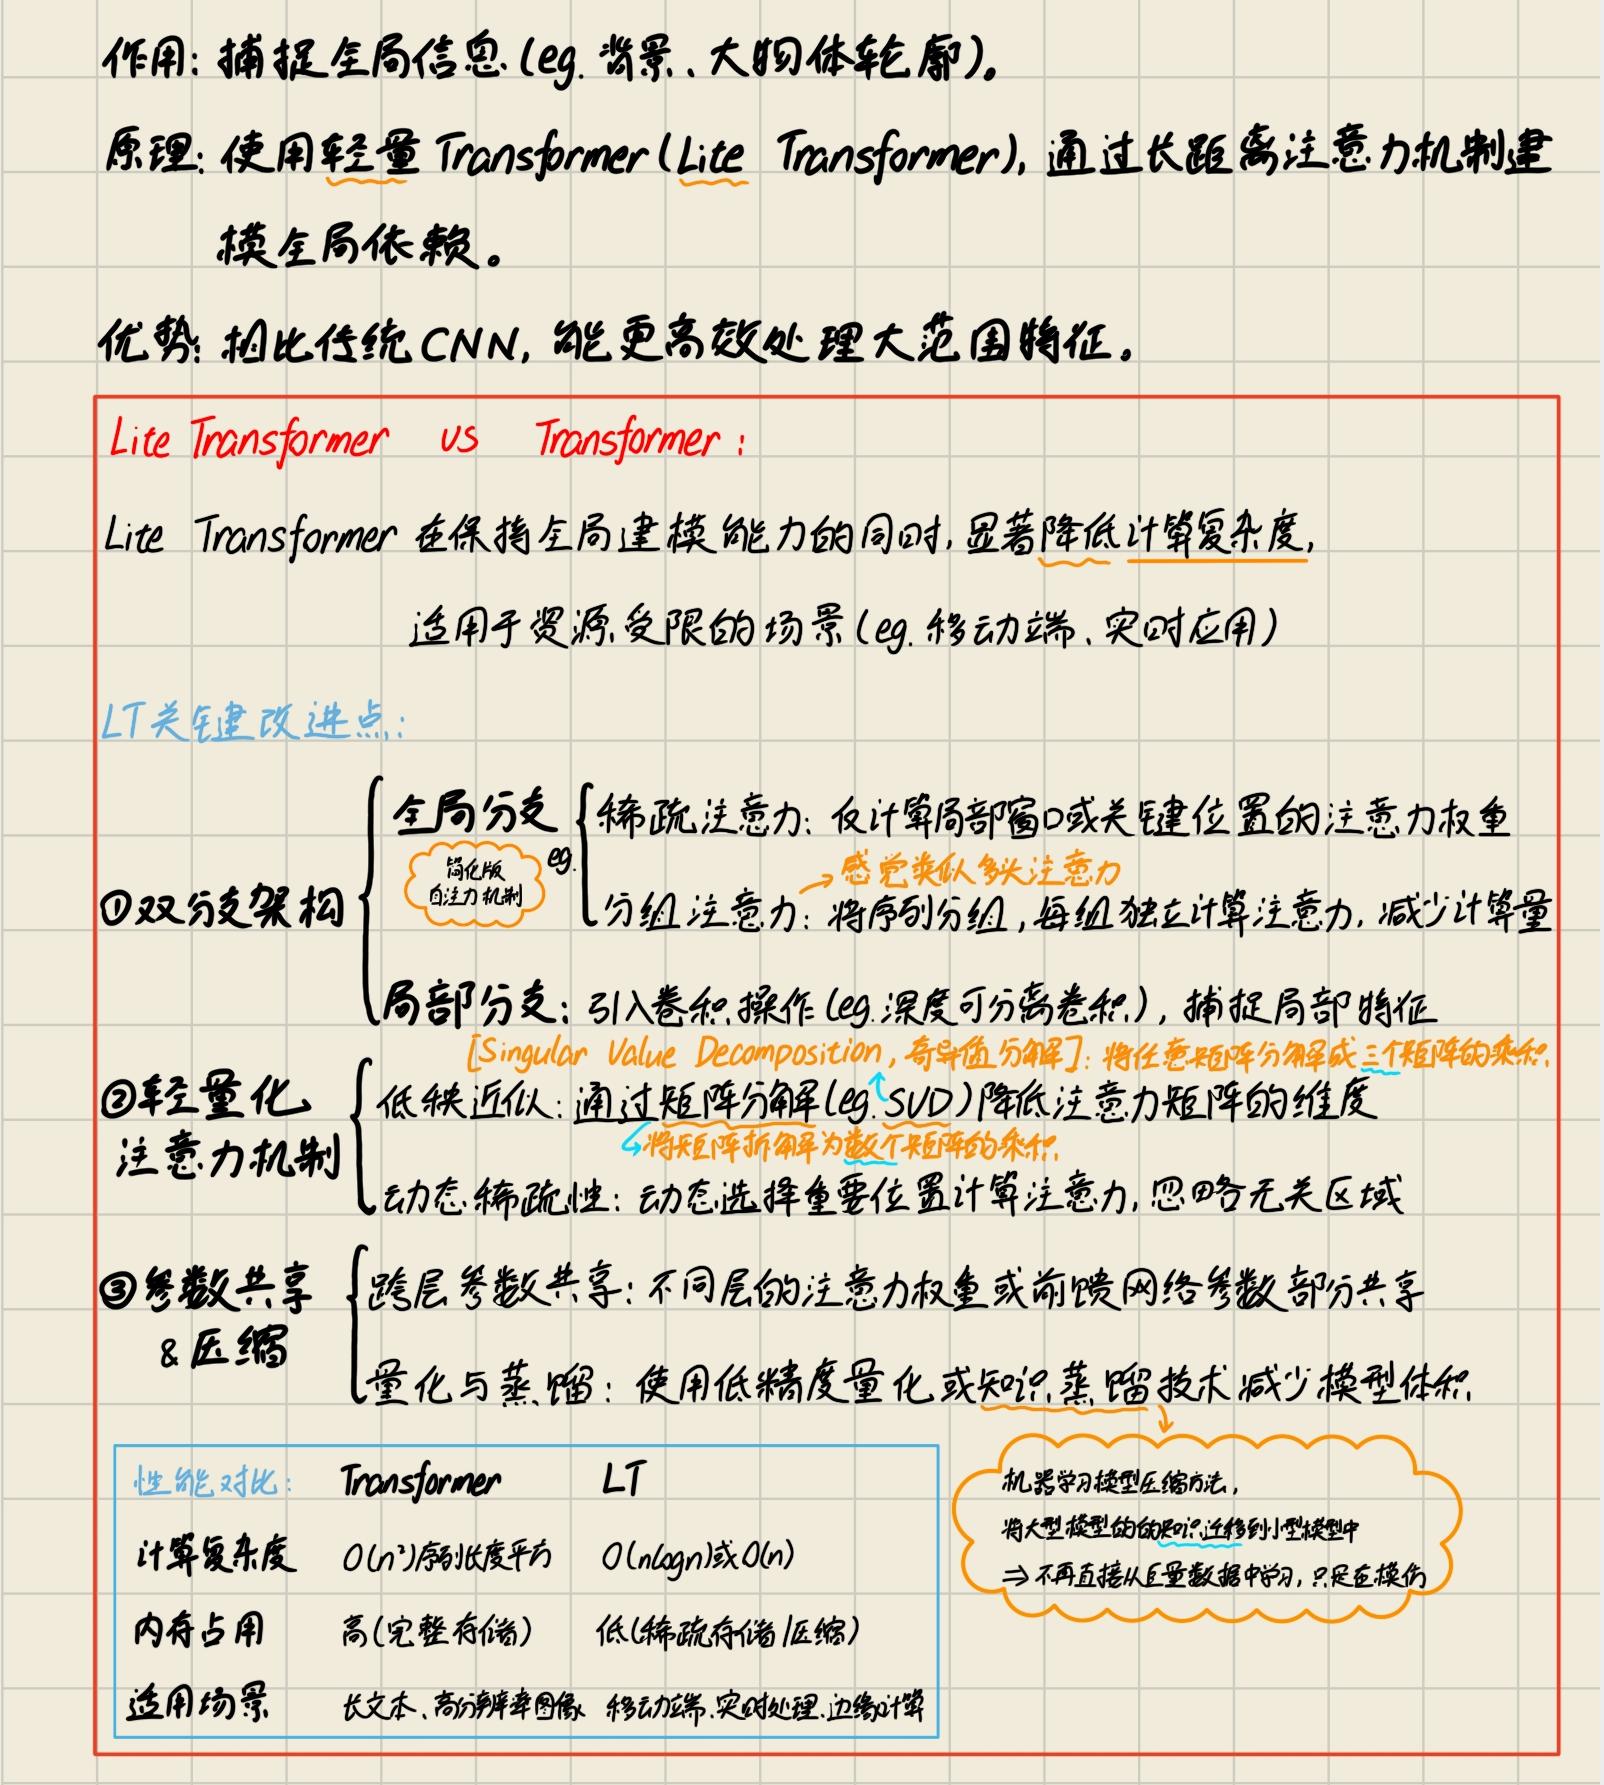 作用: 捕捉全局信息(eg. 背景、大物体轮廓)。
原理: 使用轻量 Transformer(Lite Transformer), 通过长距离注意力机制建
模全局依赖。
优势: 相比传统CNN, 能更高效处理大范围特征。
Lite Transformer vs Transformer:
Lite Transformer 在保持全局建模能力的同时, 显著降低计算复杂度,
适用于资源受限的场景(eg. 移动端、实时应用)
LT关键改进点:
①双分支架构
全局分支
简化版
自注力机制
eg.
稀疏注意力: 仅计算局部窗口或关键位置的注意力权重
→感觉类似多头注意力
分组注意力: 将序列分组, 每组独立计算注意力, 减少计算量
局部分支: 引入卷积操作(eg. 深度可分离卷积), 捕捉局部特征
[Singular Value Decomposition, 奇异值分解]: 将任意矩阵分解成三个矩阵的乘积.
②轻量化
注意力机制
低秩近似: 通过矩阵分解(eg. SVD)降低注意力矩阵的维度
将矩阵拆解为数个矩阵的乘积.
动态稀疏性: 动态选择重要位置计算注意力, 忽略无关区域
③参数共享
&压缩
跨层参数共享: 不同层的注意力权重或前馈网络参数部分共享
量化与蒸馏: 使用低精度量化或知识蒸馏技术减少模型体积
机器学习模型压缩方法,
将大型模型的的知识迁移到小型模型中
⇒不再直接从巨量数据中学习, 只是在模仿
性能对比: Transformer LT
计算复杂度 O(n²)序列长度平方 O(nlogn)或O(n)
内存占用 高(完整存储) 低(稀疏存储/压缩)
适用场景 长文本、高分辨率图像 移动端、实时处理、边缘计算